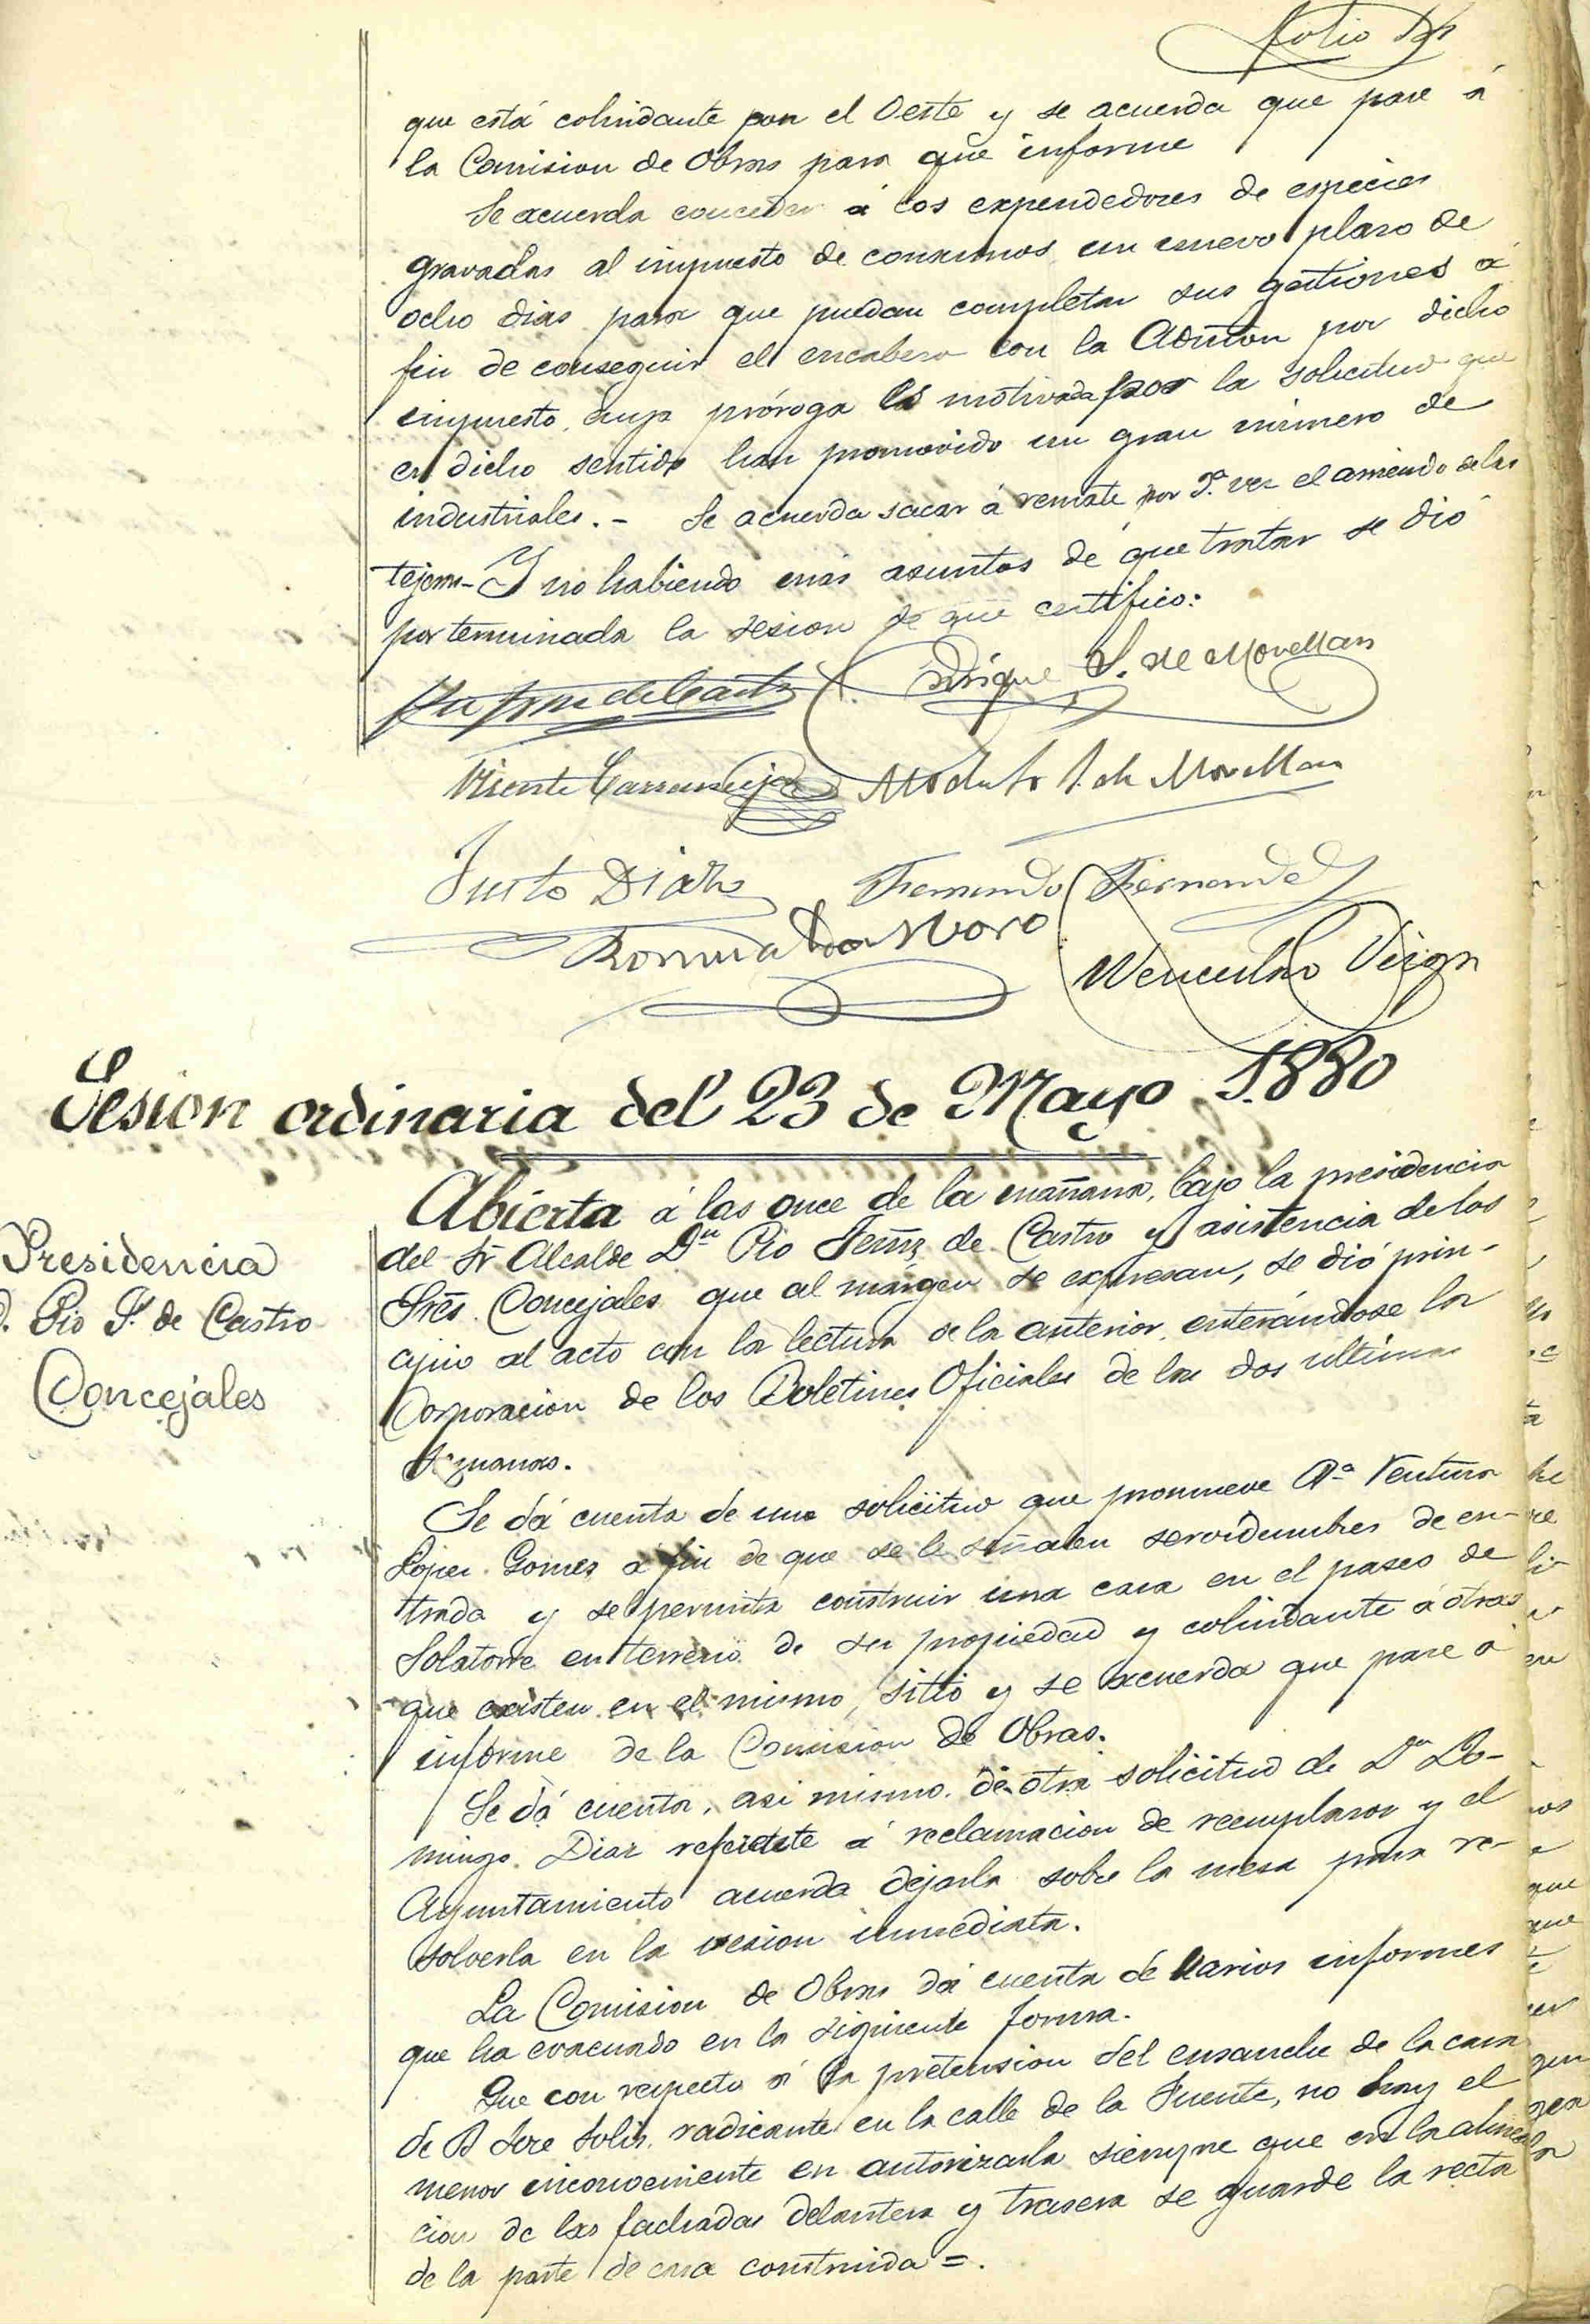 folio
que está colindante por el Oeste y se acuerda que pase á
la Comision de Obras para que informe
Se acuerda conceder á los expendedores de especies
gravadas al impuesto de consumos un nuevo plazo de
ocho dias para que puedan completar sus gestiones á
fin de conseguir el encabezo con la Admon por dicho
impuesto, cuya próroga es motivada por la solicitud que
en dicho sentido han promovido un gran número de
industriales. - Se acuerda sacar á remate por vez el arriendo de las
tejeras - Y no habiendo más asuntos de que tratar se dió
por terminada la sesion de que certifico:
Pio Frnz de Castro Enrique S. de Movellan
Vicente Modesto S. de Movellan
Justo Diaz Fernando Fernandez
Romualdo Moro
Wenceslao Vega
Sesion ordinaria del 23 de Mayo 1.880
Abierta á las once de la mañana, bajo la presidencia
del Sr Alcalde Dn Pio Fernz de Castro y asistencia de los
Sres. Concejales que al márgen se expresan, se dió prin-
cipio al acto con la lectura de la anterior, enterándose la
Corporacion de los Boletines Oficiales de las dos últimas
semanas.
Presidencia
D. Pio F. de Castro
Concejales
Se dá cuenta de una solicitud que promueve Dª Ventura
Lopez Gomez á fin de que se le señalen servidumbres de en-
trada y se permita construir una casa en el paseo de
Solatorre en terreno de su propiedad y colindante á otras
que existen en el mismo sitio y se acuerda que pase á
informe de la Comision de Obras.
Se dá cuenta, asi mismo, de otra solicitud de Dn Do-
mingo Diaz referente á reclamacion de reemplazos y el
Ayuntamiento acuerda dejarla sobre la mesa para re-
solverla en la sesion inmediata.
La Comision de Obras dá cuenta de varios informes
que ha evacuado en la siguiente forma.
Que con respecto á la pretension del ensanche de la casa
de D Jose Solis, radicante en la calle de la Fuente, no hay el
menor inconveniente en autorizarla siempre que en la alinea
cion de las fachadas delantera y trasera se guarde la recta
de la parte de casa construida =.